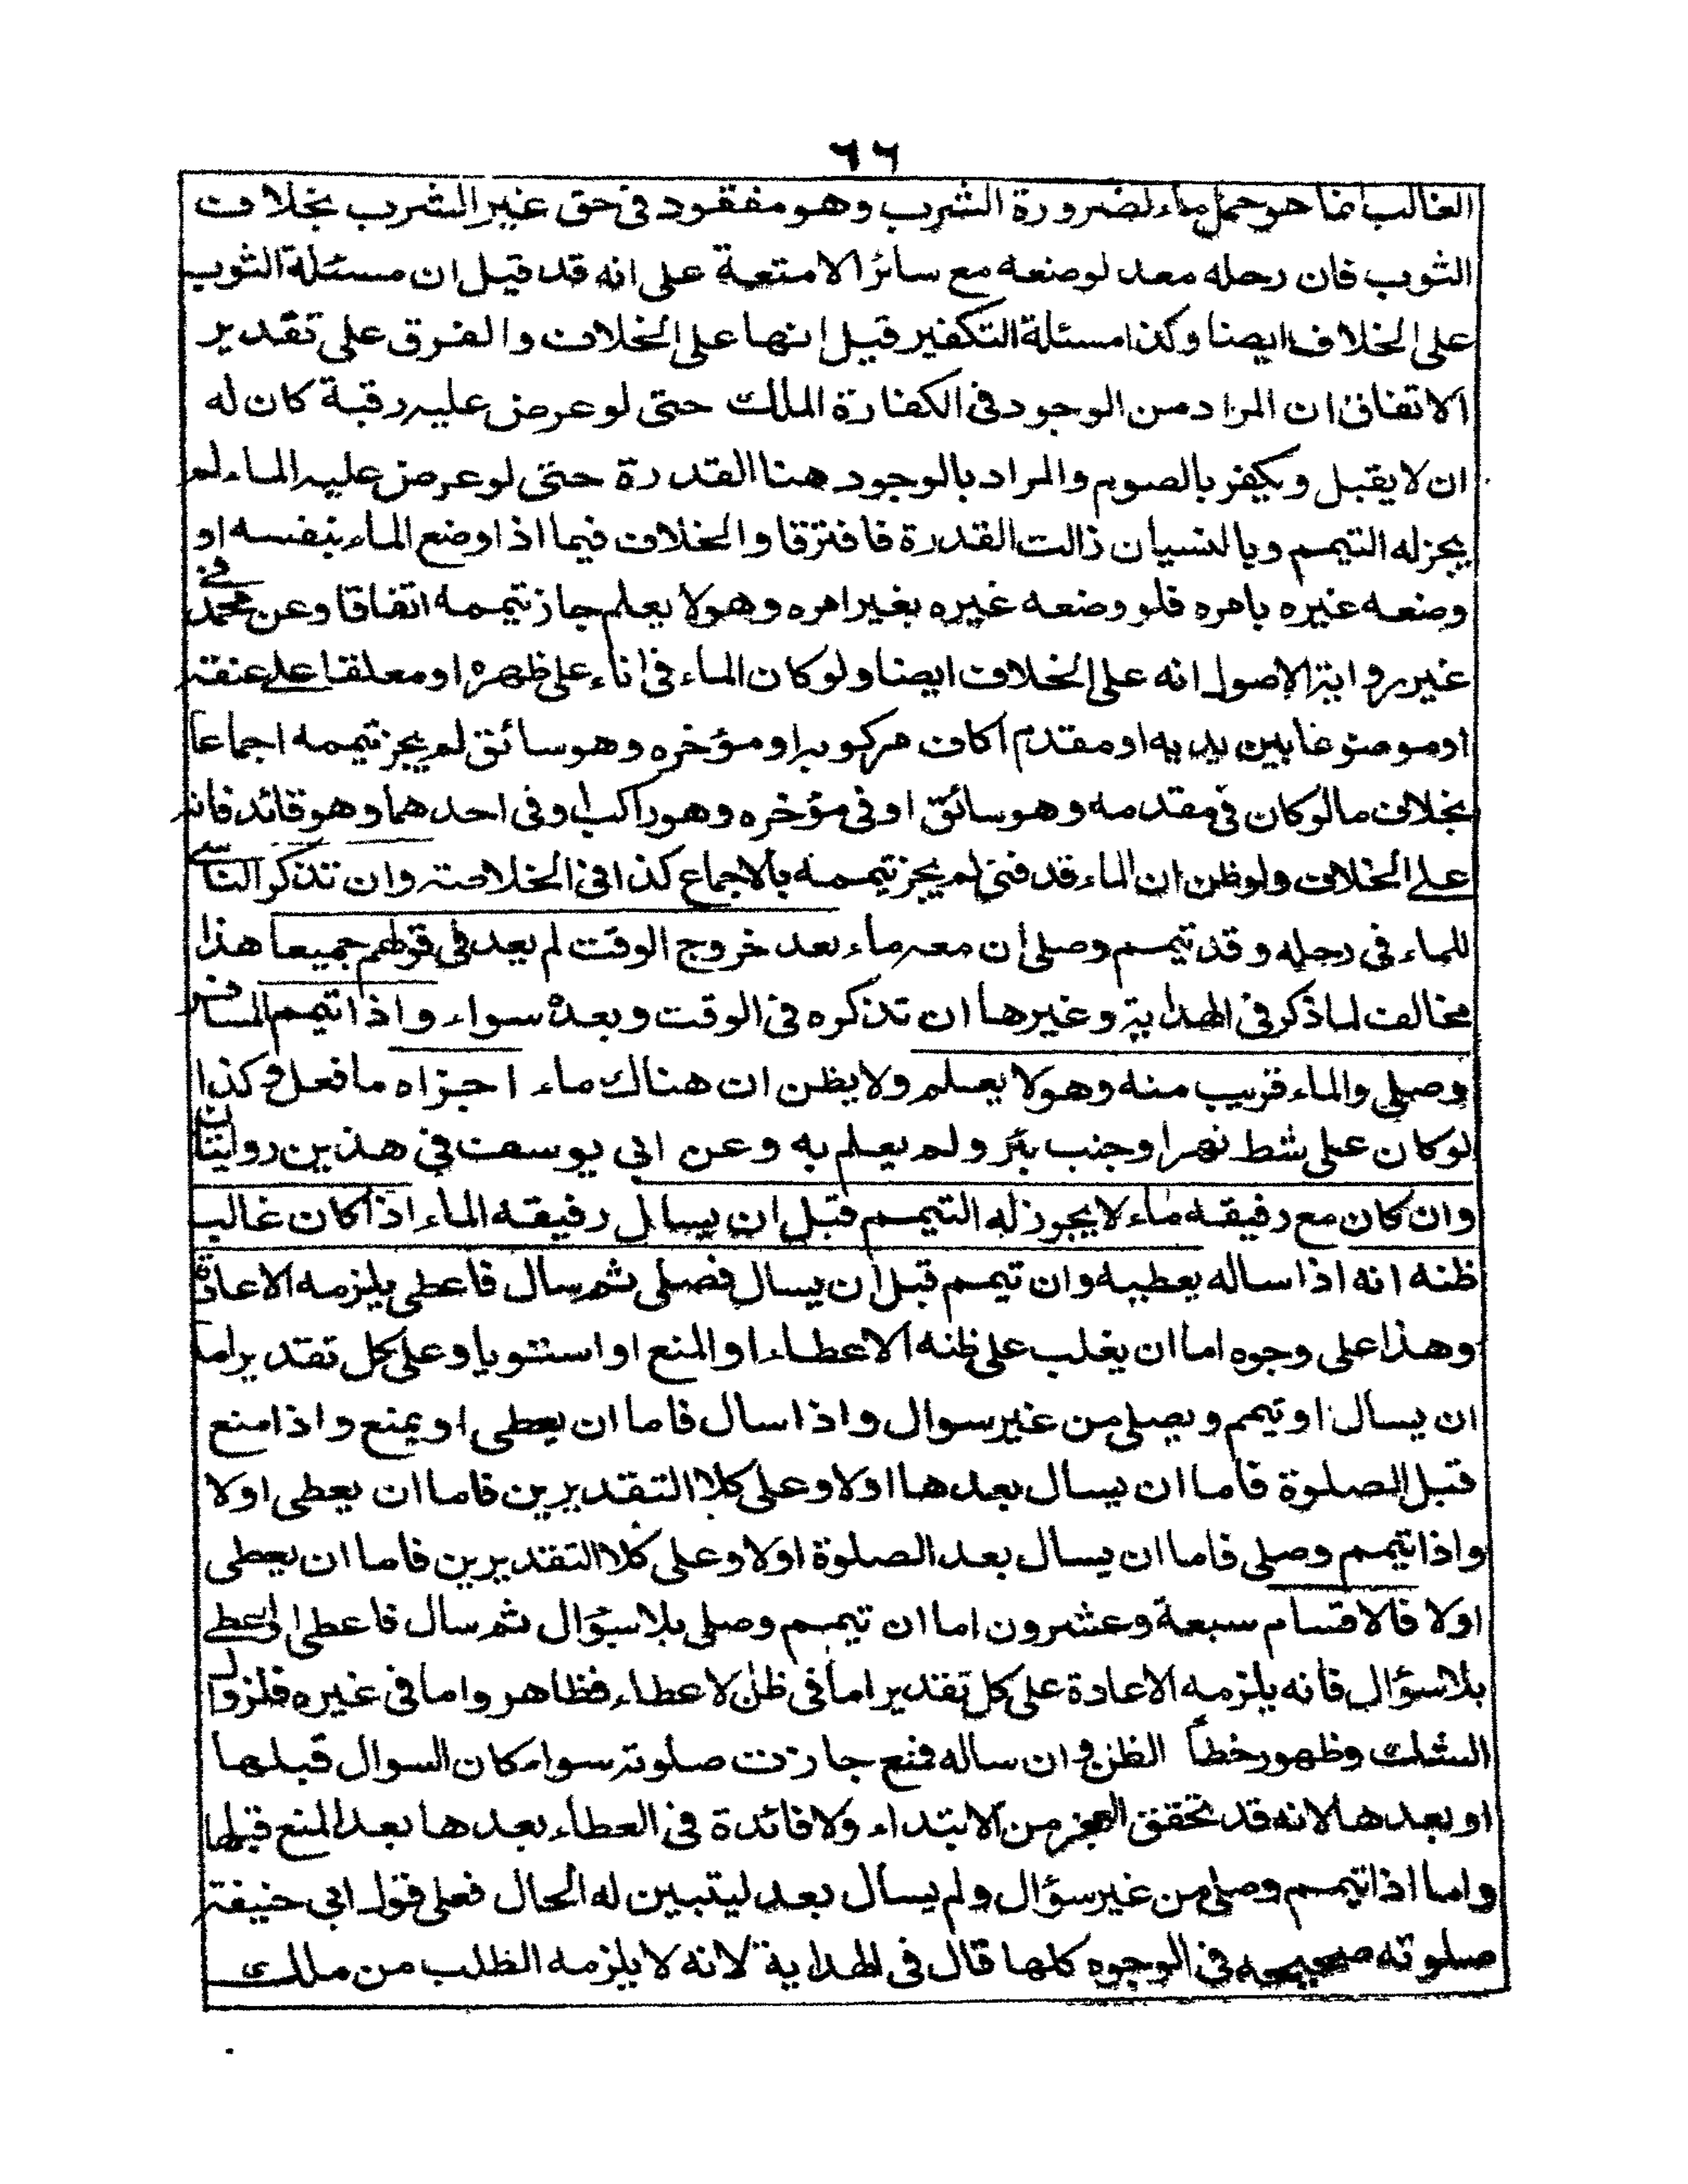 ٦٦
الغالب انما هو حمل ماء لضرورة الشرب وهو مفقود فى حق غير الشرب بخلاف
الثوب فان رحله معد لوضعه مع سائر الامتعة على انه قد قيل ان مسئلة الثوب
على الخلاف ايضا وكذا مسئلة التكفير قيل انها على الخلاف والفرق على تقدير
الاتفاق ان المراد من الوجود فى الكفارة الملك حتى لو عرض عليه رقبة كان له
ان لا يقبل ويكفر بالصوم والمراد بالوجود هنا القدرة حتى لو عرض عليه الماء لم
يجزله التيمم وبالنسيان زالت القدرة فافترقا والخلاف فيما اذا وضع الماء بنفسه او
وضعه غيره بامره فلو وضعه غيره بغير امره وهو لا يعلم جاز تيممه اتفاقا وعن محمد فى
غير رواية الاصول انه على الخلاف ايضا ولو كان الماء فى اناء على ظهره او معلقا على عنقه
او موضوعا بين يديه او مقدم اكاف مركوبه او مؤخره وهو سائق لم يجز تيممه اجماعا
بخلاف مالو كان فى مقدمه وهو سائق او فى مؤخره وهو راكب او فى احدهما وهو قائد فانه
على الخلاف ولو ظن ان الماء قد فنى لم يجز تيممه بالاجماع كذا فى الخلاصة وان تذكر الناسى
للماء فى رحله وقد تيمم وصلى ان معه ماء بعد خروج الوقت لم يعد فى قولهم جميعا هذا
مخالف لما ذكر فى الهداية وغيرها ان تذكره فى الوقت وبعده سواء واذا تيمم المسافر
وصلى والماء قريب منه وهو لا يعلم ولا يظن ان هناك ماء اجزاه ما فعل وكذا
لو كان على شط نهر او جنب بئر ولم يعلم به وعن ابى يوسف فى هذين روايتان
وان كان مع رفيقه ماء لا يجوز له التيمم قبل ان يسال رفيقه الماء اذا كان غالب
ظنه انه اذا ساله يعطيه وان تيمم قبل ان يسال فصلى ثم سال فاعطى يلزمه الاعادة
وهذا على وجوه اما ان يغلب على ظنه الاعطاء او المنع او استويا وعلى كل تقدير اما
ان يسال او تيمم ويصلى من غير سوال واذا سال فاما ان يعطى او يمنع واذا منع
قبل الصلوة فاما ان يسال بعدها اولا وعلى كلا التقديرين فاما ان يعطى اولا
واذا تيمم وصلى فاما ان يسال بعد الصلوة اولا وعلى كلا التقديرين فاما ان يعطى
اولا فالاقسام سبعة وعشرون اما ان تيمم وصلى بلا سؤال ثم سال فاعطى او اعطى
بلا سؤال فانه يلزمه الاعادة على كل تقدير اما فى ظن الاعطاء فظاهر واما فى غيره فلزوال
الشك وظهور خطأ الظن وان ساله فمنع جازت صلوته سواء كان السوال قبلها
او بعدها لانه قد تحقق العجز من الابتداء ولا فائدة فى العطاء بعدها بعد المنع قبلها
واما اذا تيمم وصلى من غير سؤال ولم يسال بعد ليتبين له الحال فعلى قول ابى حنيفة
صلوته صحيحه فى الوجوه كلها قال فى الهداية لانه لا يلزمه الطلب من ملك